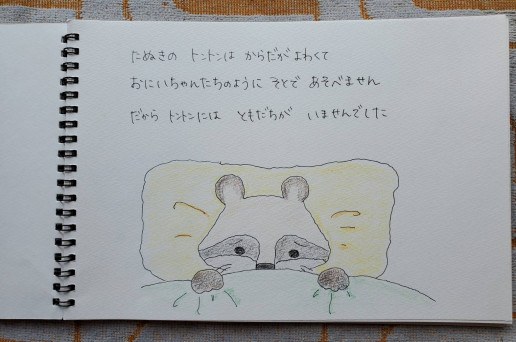 たぬきの トントンは からだがよわくて
おにいちゃんたちのように そとで あそべません
だから トントンには ともだちが いませんでした